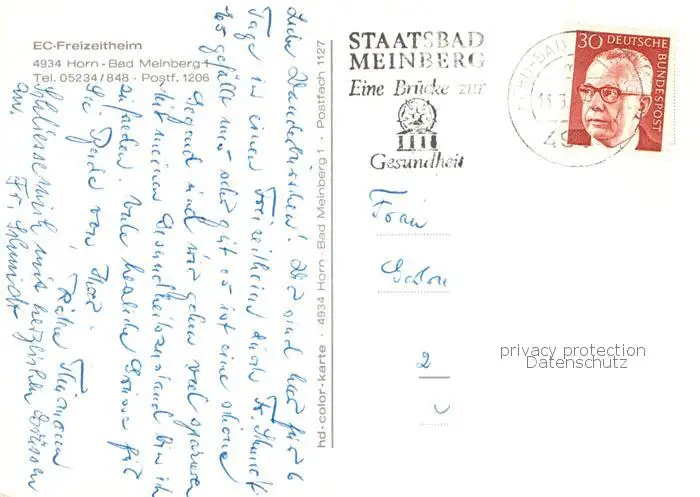 EC-Freizeitheim
4934 Horn - Bad Meinberg 1
Tel. 05234/848 · Postf. 1206
Liebe Wir sind hier für 6
Tage in einem Freizeitheim durch Fr. Schmidt
es gefällt uns sehr gut es ist eine schöne
Gegend und wir gehen viel spazieren
Mit meinem Gesundheitszustand bin ich
zufrieden. Viele herzliche Grüsse für
Sie Beide von Ihrer
Käthe
Schliesse mich mit herzlichen Grüssen
an. Fr. Schmidt
hd-color-karte · 4934 Horn · Bad Meinberg 1 · Postfach 1127
STAATSBAD
MEINBERG
Eine Brücke zur
Gesundheit
HORN-BAD
13.3.
49
30 DEUTSCHE
BUNDESPOST
Frau
2
privacy protection
Datenschutz